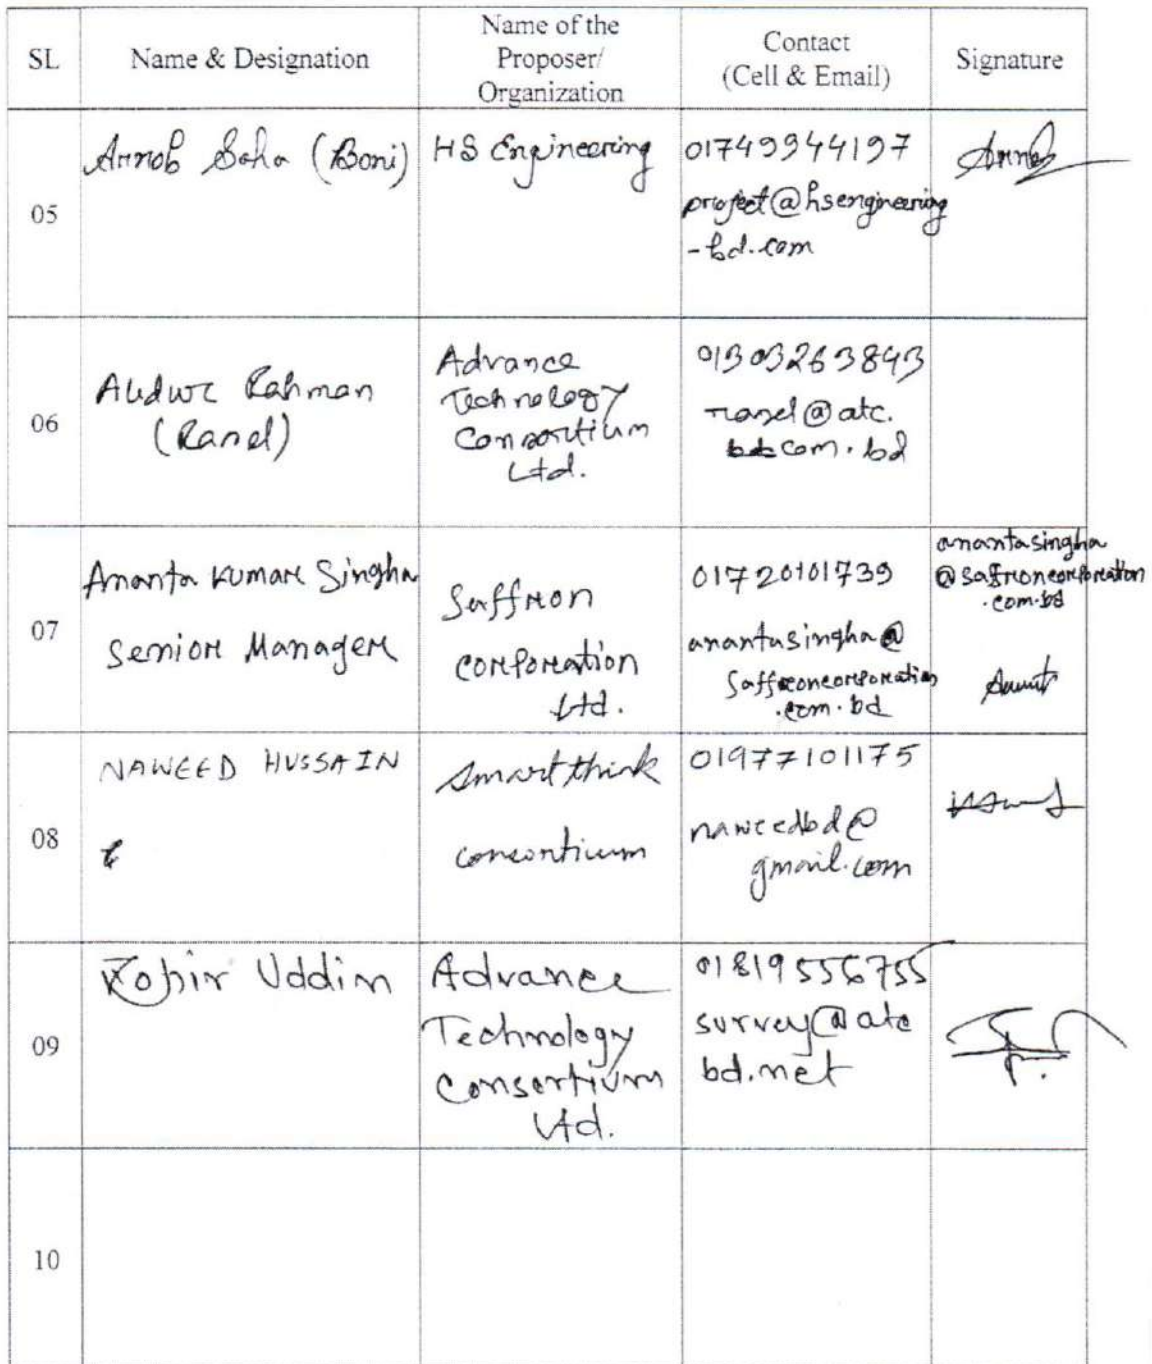 SL
Name & Designation
Name of the
Proposer/
Organization
Contact
(Cell & Email)
Signature
05
Arnob Saha (Boni)
HS Engineering
01749944197
project@hsengineering
-bd.com
Arnob
06
Rahman
(Rasel)
Advance
Technology
Consortium
Ltd.
01303263843
rasel@atc.
com.bd
07
Ananta Kumar Singha
Senior Manager
Saffron
corporation
Ltd.
01720101739
anantasingha@
saffroncorporation
.com.bd
anantasingha
@saffroncorporation
.com.bd
08
NAWEED HUSSAIN
Smart think
consortium
01977101175
naweedbd@
gmail.com
09
Kobir Uddin
Advance
Technology
Consortium
Ltd.
01819556755
survey@atc
bd.net
10